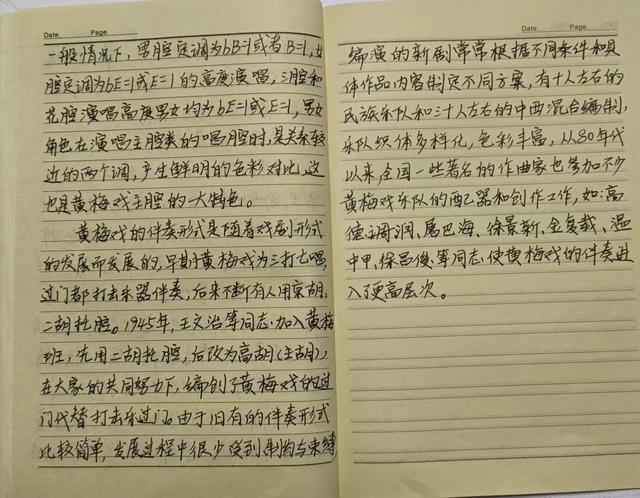 Date. Page.
一般情况下，男腔定调为bB=1或者B=1，女
腔定调为bE=1或E=1的高度演唱，三腔和
花腔演唱高度男女均为bE=1或E=1，男女
角色在演唱主腔类的唱腔时，是关系较
近的两个调，产生鲜明的色彩对比，这
也是黄梅戏主腔的一大特色。
黄梅戏的伴奏形式是随着戏剧形式
的发展而发展的，早期黄梅戏为三打七唱，
过门都打击乐器伴奏，后来不断有人用京胡，
二胡托腔。1945年，王文治等同志加入黄梅
班，先用二胡托腔，后改为高胡（主胡），
在大家的共同努力下，编创了黄梅戏的过
门代替打击乐过门。由于旧有的伴奏形式
比较简单，发展过程中很少受到制约与束缚，
Date. Page.
编演的新剧常常根据不同条件和具
体作品内容制定不同方案，有十人左右的
民族乐队和三十人左右的中西混合编制，
乐队织体多样化，色彩丰富，从80年代
以来，全国一些著名的作曲家也参加不少
黄梅戏乐队的配器和创作工作，如：高
德主调润、屠巴海、徐景新、金复载、温
中甲、徐昌俊、等同志，使黄梅戏的伴奏进
入了更高层次。